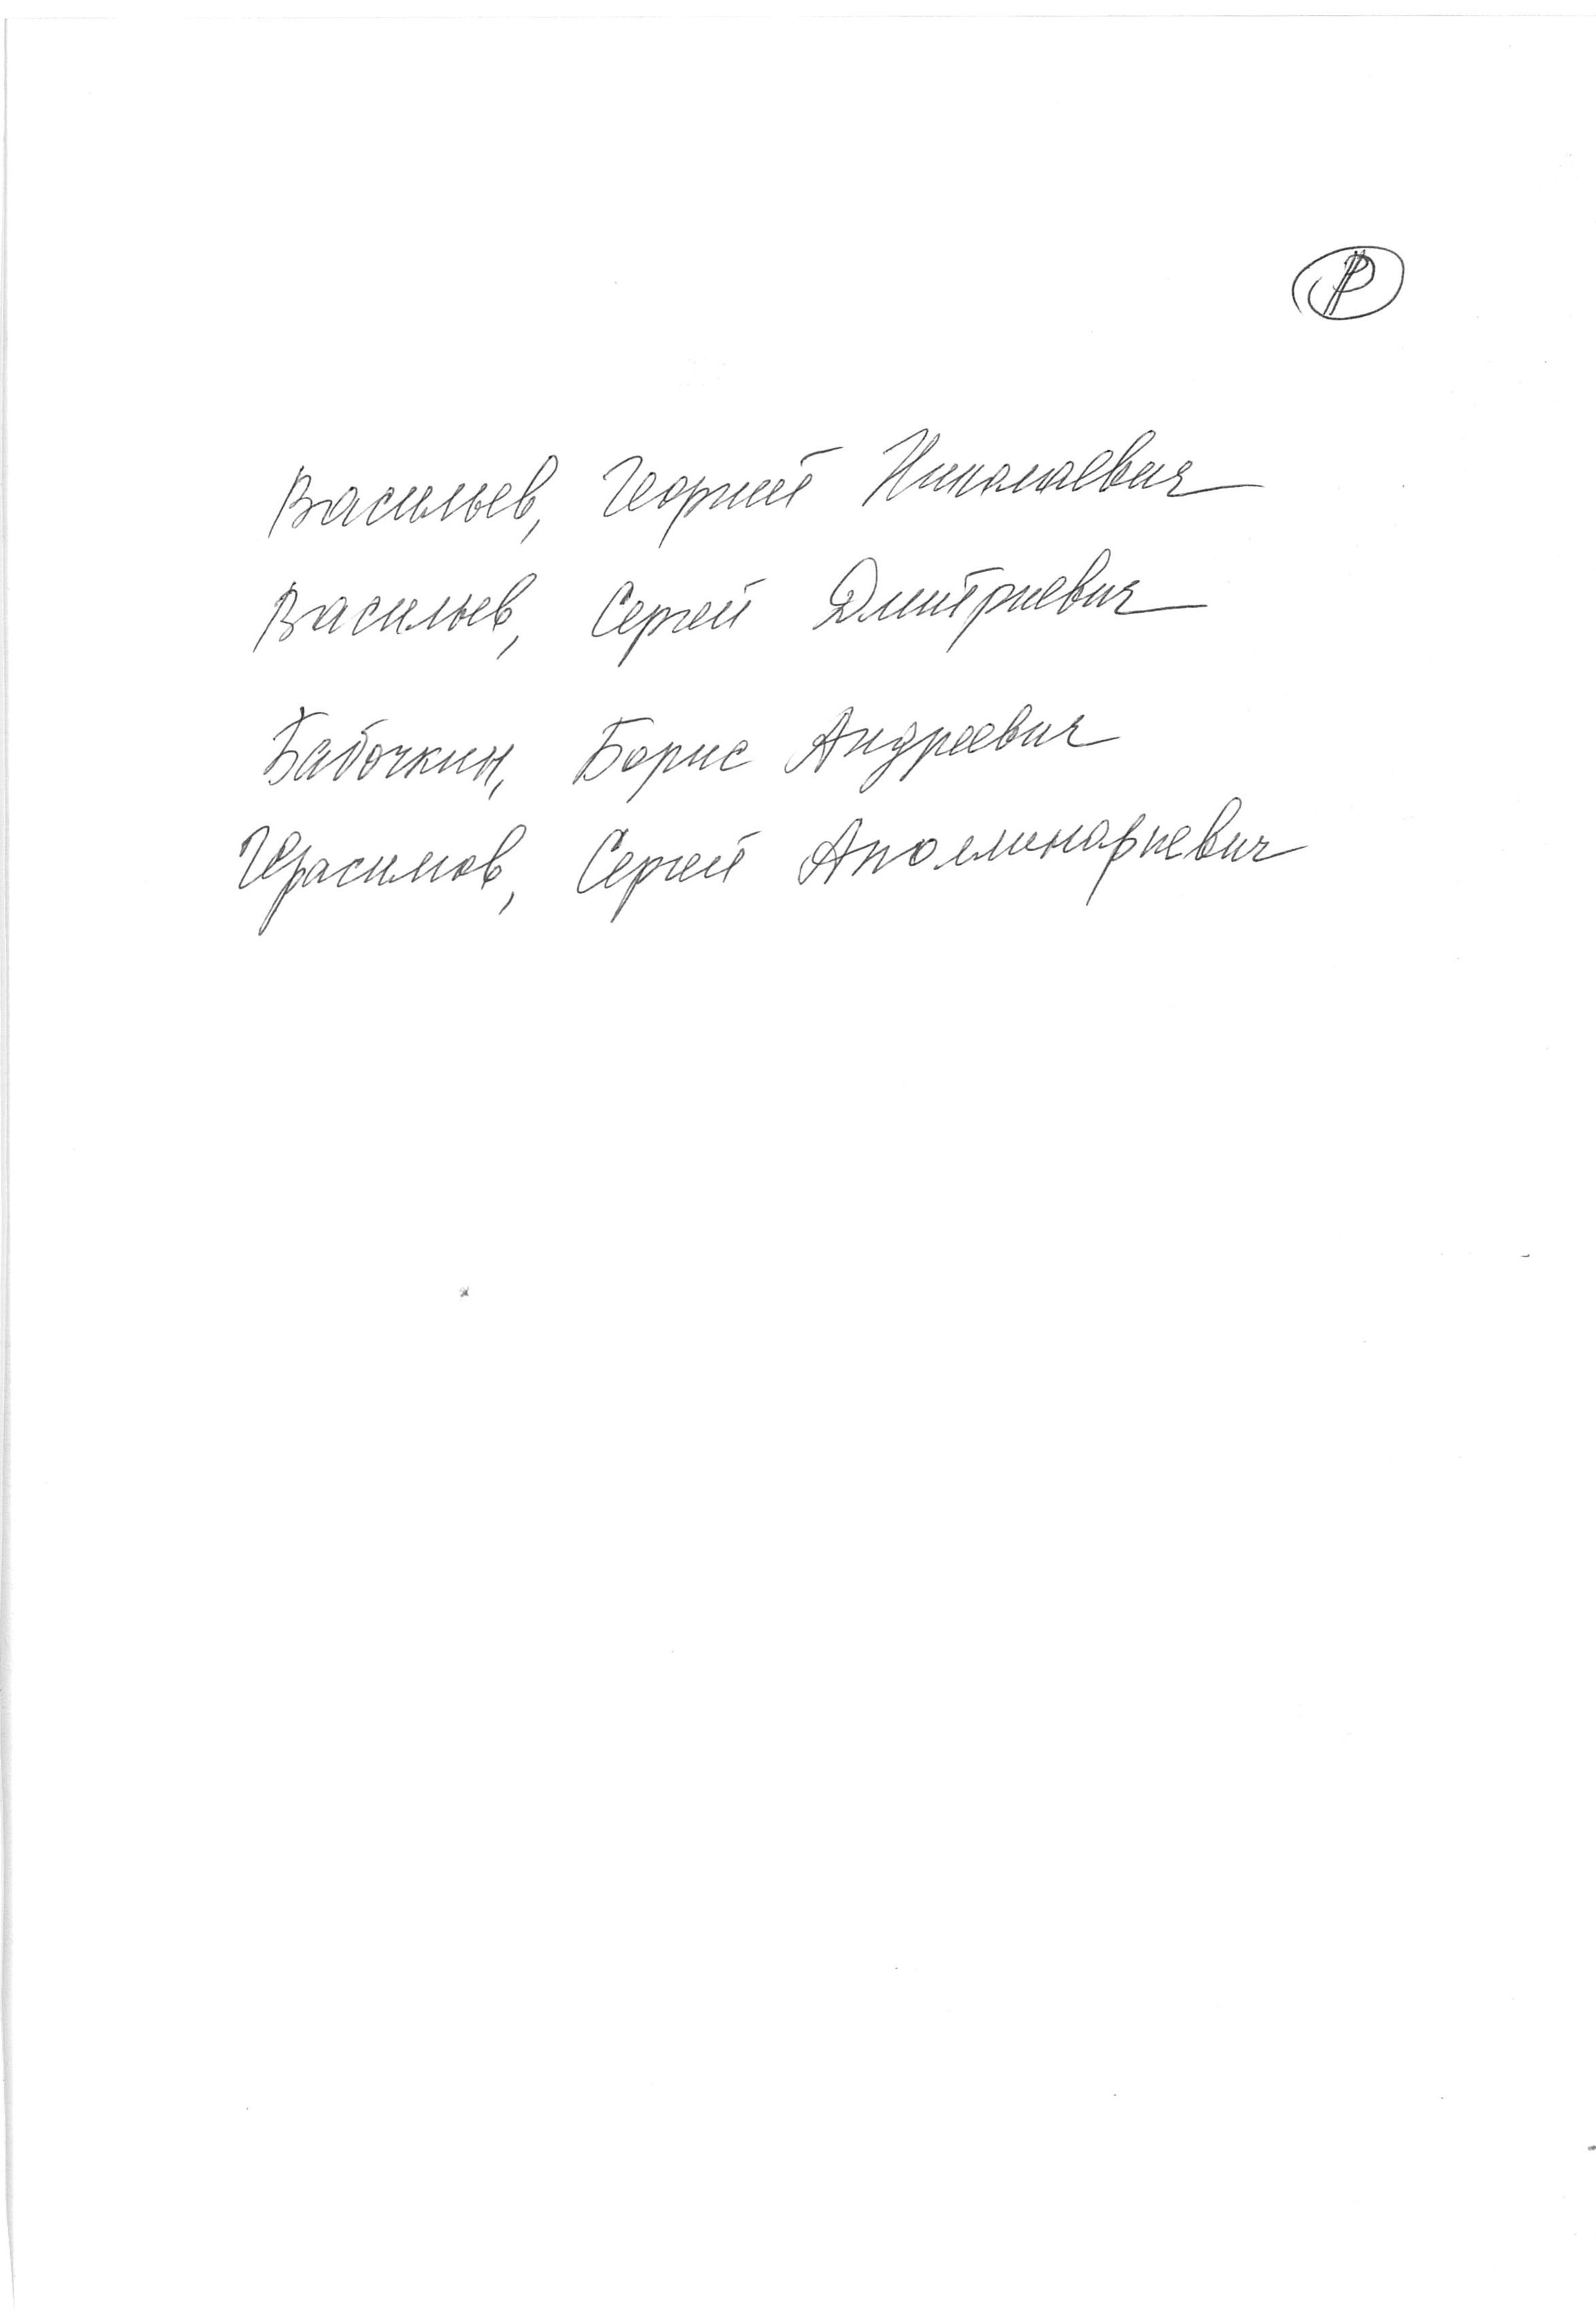 Р
Васильев, Георгий Николаевич
Васильев, Сергей Дмитриевич
Бабочкин, Борис Андреевич
Герасимов, Сергей Аполлинариевич